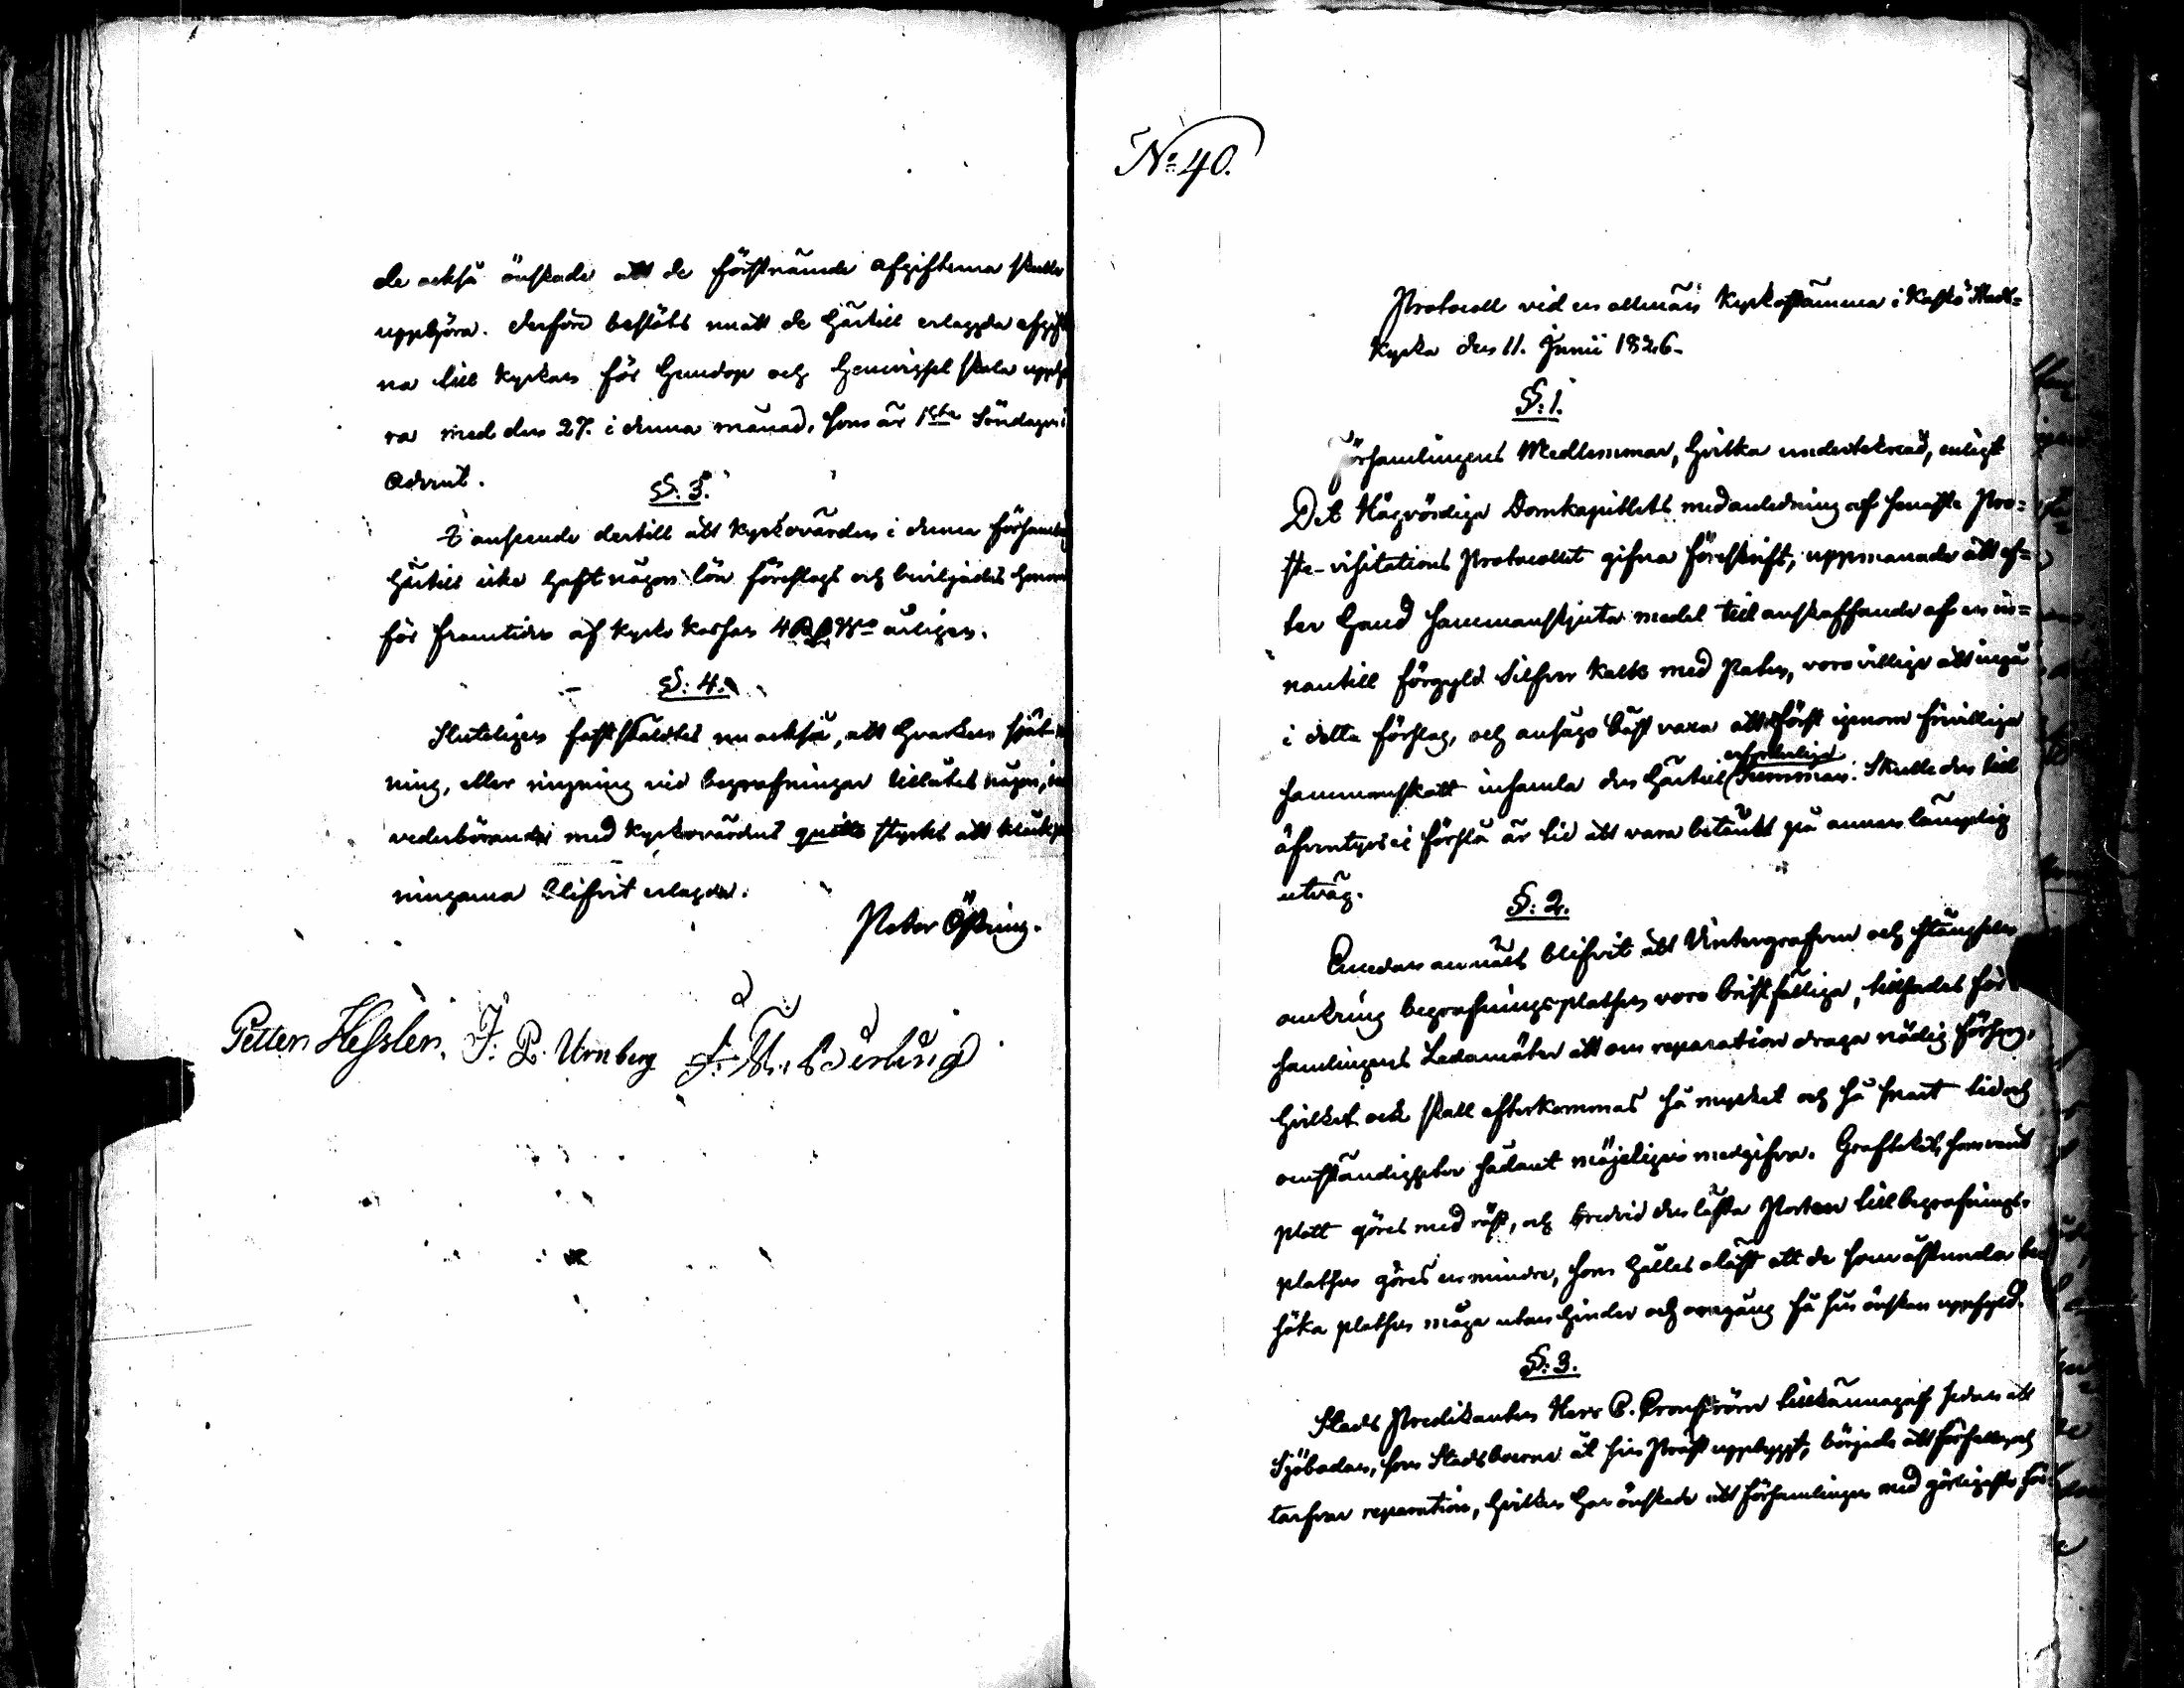 de också önskade att de förstnämde afgifterna skulle
upphöra. derföre beslöts nu att de härtill erlagda afgift
na till Kyrkan för hemdop och hemvigsel skola upphö
ra med den 27. i denna månad, som är 1sta Söndagen i
Advent.
§. 3.
I anseende dertill att Kyrkovärden i denna Församling
härtill icke haft någon lön föreslogs och beviljades honom
för framtiden af Kyrko Kassan 4 Rub. Bco årligen.
§: 4.
Sluteligen fastställdes nu också, att hvarken själ-
ning, eller ringning vid begrafningar tillåtes någon,
vederbörande med Kyrkovärdens quitto styrkt att
ningarna blifvit erlagda.
Peter Östring.
Petter Hesslen. J. P. Urnberg
No 40.
Protocoll vid en allmän Kyrkostämma i Kaskö Stads-
Kyrka den 11. Junii 1826.
§: 1.
Församlingens Medlemmar, hvilka undertecknad, enligt
Det Högvördiga Domkapitlets med anledning af senaste Pro-
ste-visitations Protocollet gifna föreskrift, uppmanade att ef-
ter hand sammanskjuta medel till anskaffande af en in-
nantill förgyld Silfver Kalk med Paten, voro villige att ingå
i detta förslag, och ansågo bäst vara att först igenom frivilliga
erforderliga
sammanskott insamla den härtill Summan. Skulle den till
äfventyrs ei förslå är tid att vara betänkt på annan lämplig
utväg.
§: 2.
Emedan anmält blifvit att Vintergrafven och stängslen
omkring begrafningsplatsen voro bristfällige, tillsades För-
samlingens Ledamöter att om reparation draga nödig försorg,
hvilket ock skall efterkommas så mycket och så snart tid och
omständigheter sådant möjeligen medgifva. Graftaket, som varit
platt göres med röst, och bredvid den låsta Porten till begrafnings-
platsen göres en mindre, som hålles olåst att de som åstunda be-
söka platsen måga utan hinder och omgång få sin önskan uppfyld.
§: 3.
Stads Predikanten Herr C. Cronström tillkännagaf sedan att
Sjöboden, som Stadsboerne åt sin Prest uppbyggt, började att förfalla och
tarfvar reparation, hvilken han önskade att församlingen med görligaste för-